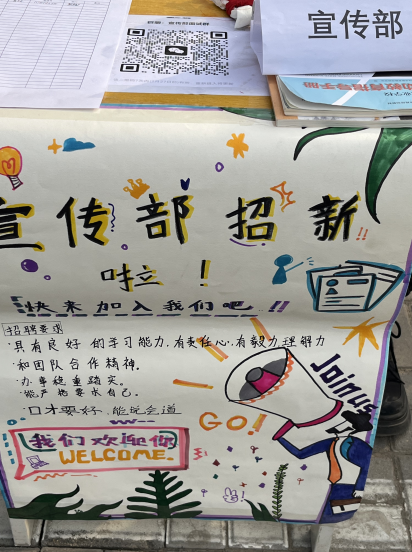 宣传部
宣传部招新
啦！
快来加入我们吧!!
招聘要求
·具有良好的学习能力,有责任心,有毅力理解力
·和团队合作精神.
·办事稳重踏实.
能严格要求自己.
·口才要好,能说会道
GO!
Join us
我们欢迎你
WELCOME.